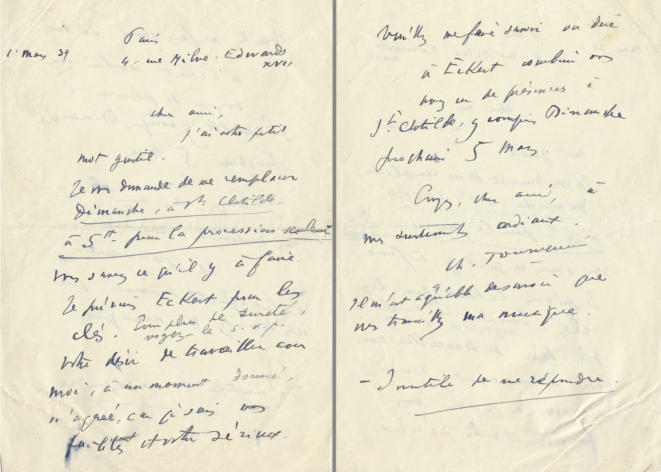 Paris
1er mars 39
4 - rue Milne-Edwards
XVII
cher ami,
j'ai votre petit
mot gentil.
Je vous demande de me remplacer
Dimanche, à Ste Clotilde
à 5h pour la procession
Vous savez ce qu'il y a à faire.
Je préviens Eckert pour les
clés. Pour plus de sureté,
voyez-le s. v. p.
Votre désir de travailler avec
moi, à un moment donné,
m'agrée, car je sais vos
facilités et votre sérieux.
Veuillez me faire savoir ou dire
à Eckert combien vous
avez eu de présences à
Ste Clotilde, y compris Dimanche
prochain 5 Mars.
Croyez, cher ami, à
mes sentiments cordiaux.
Ch. Tournemire
Il m'est agréable de savoir que
vous travaillez ma musique.
- Inutile de me répondre.